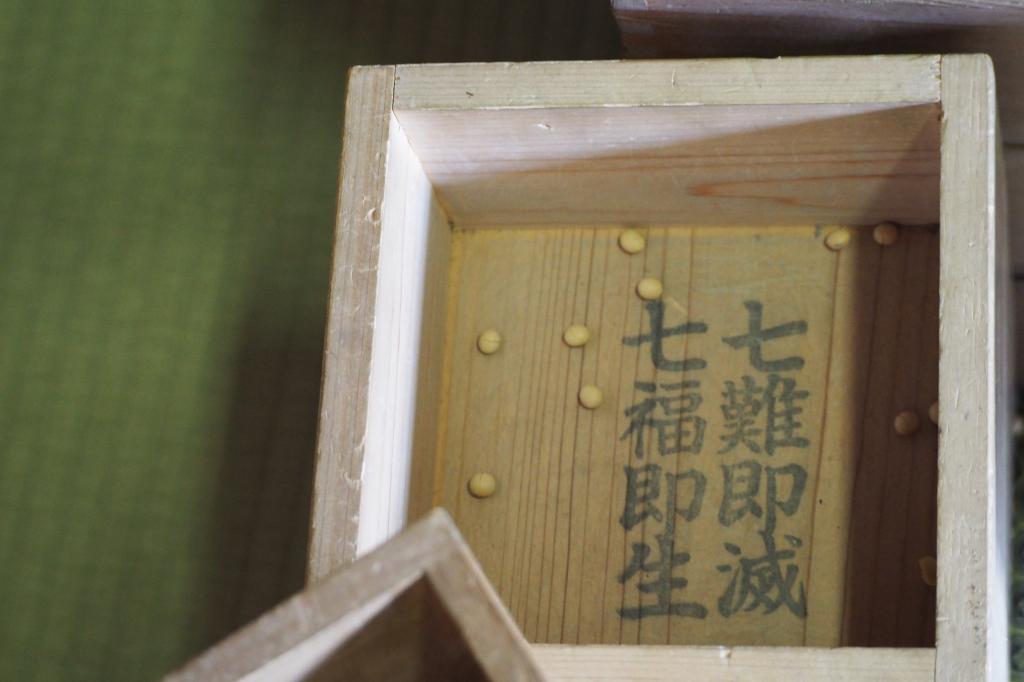 七難即滅
七福即生